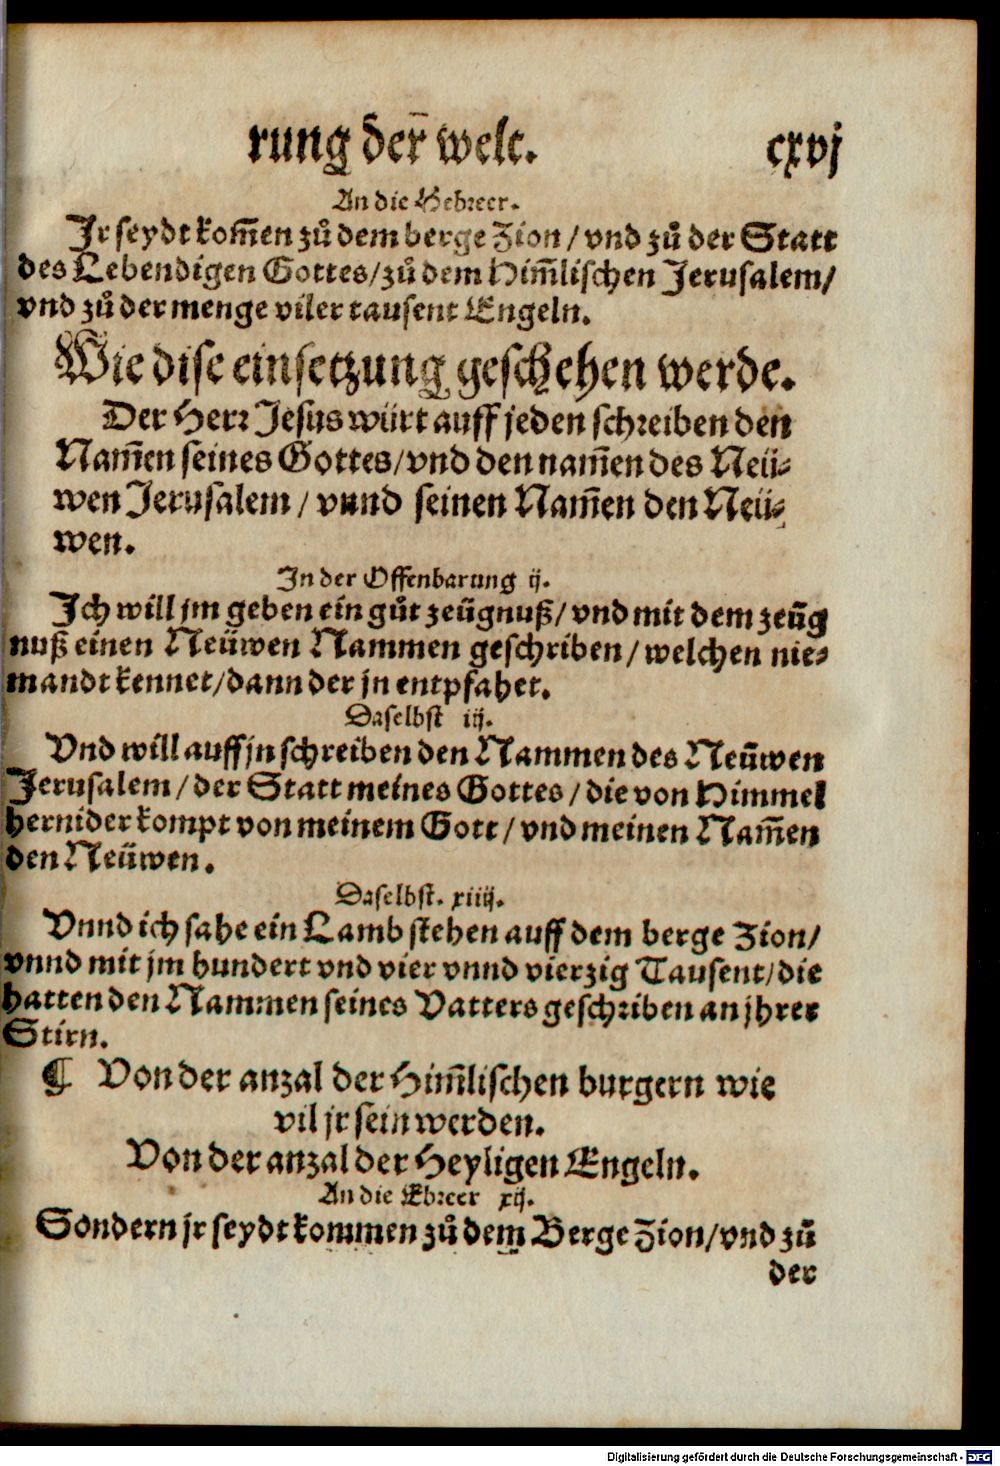 rung der̄ welt. cxvj
An die Hebreer.
Jr seydt kom̄en zů dem berge Zion / vnd zů der Statt
des Lebendigen Gottes / zů dem Him̄lischen Jerusalem /
vnd zů der menge viler tausent Engeln.
Wie dise einsetzung geschehen werde.
Der Herr Jesus würt auff jeden schreiben den
Nam̄en seines Gottes / vnd den nam̄en des Neü⸗
wen Jerusalem / vnnd seinen Nam̄en den Neü⸗
wen.
In der Offenbarung ij.
Ich will jm geben ein gůt zeügnuß / vnd mit dem zeüg
nuß einen Neüwen Nammen geschriben / welchen nie⸗
mandt kennet / dann der jn entpfahet.
Daselbst iij.
Vnd will auff jn schreiben den Nammen des Neüwen
Jerusalem / der Statt meines Gottes / die von Himmel
hernider kompt von meinem Gott / vnd meinen Nam̄en
den Neüwen.
Daselbst. xiiij.
Vnnd ich sahe ein Lamb stehen auff dem berge Zion /
vnnd mit jm hundert vnd vier vnnd vierzig Tausent / die
hatten den Nammen seines Vatters geschriben an jhrer
Stirn.
¶ Von der anzal der Him̄lischen burgern wie
vil jr sein werden.
Von der anzal der Heyligen Engeln.
An die Ebreer xij.
Sondern jr seydt kommen zů dem Berge Zion / vnd zů
der
Digitalisierung gefördert durch die Deutsche Forschungsgemeinschaft - DFG